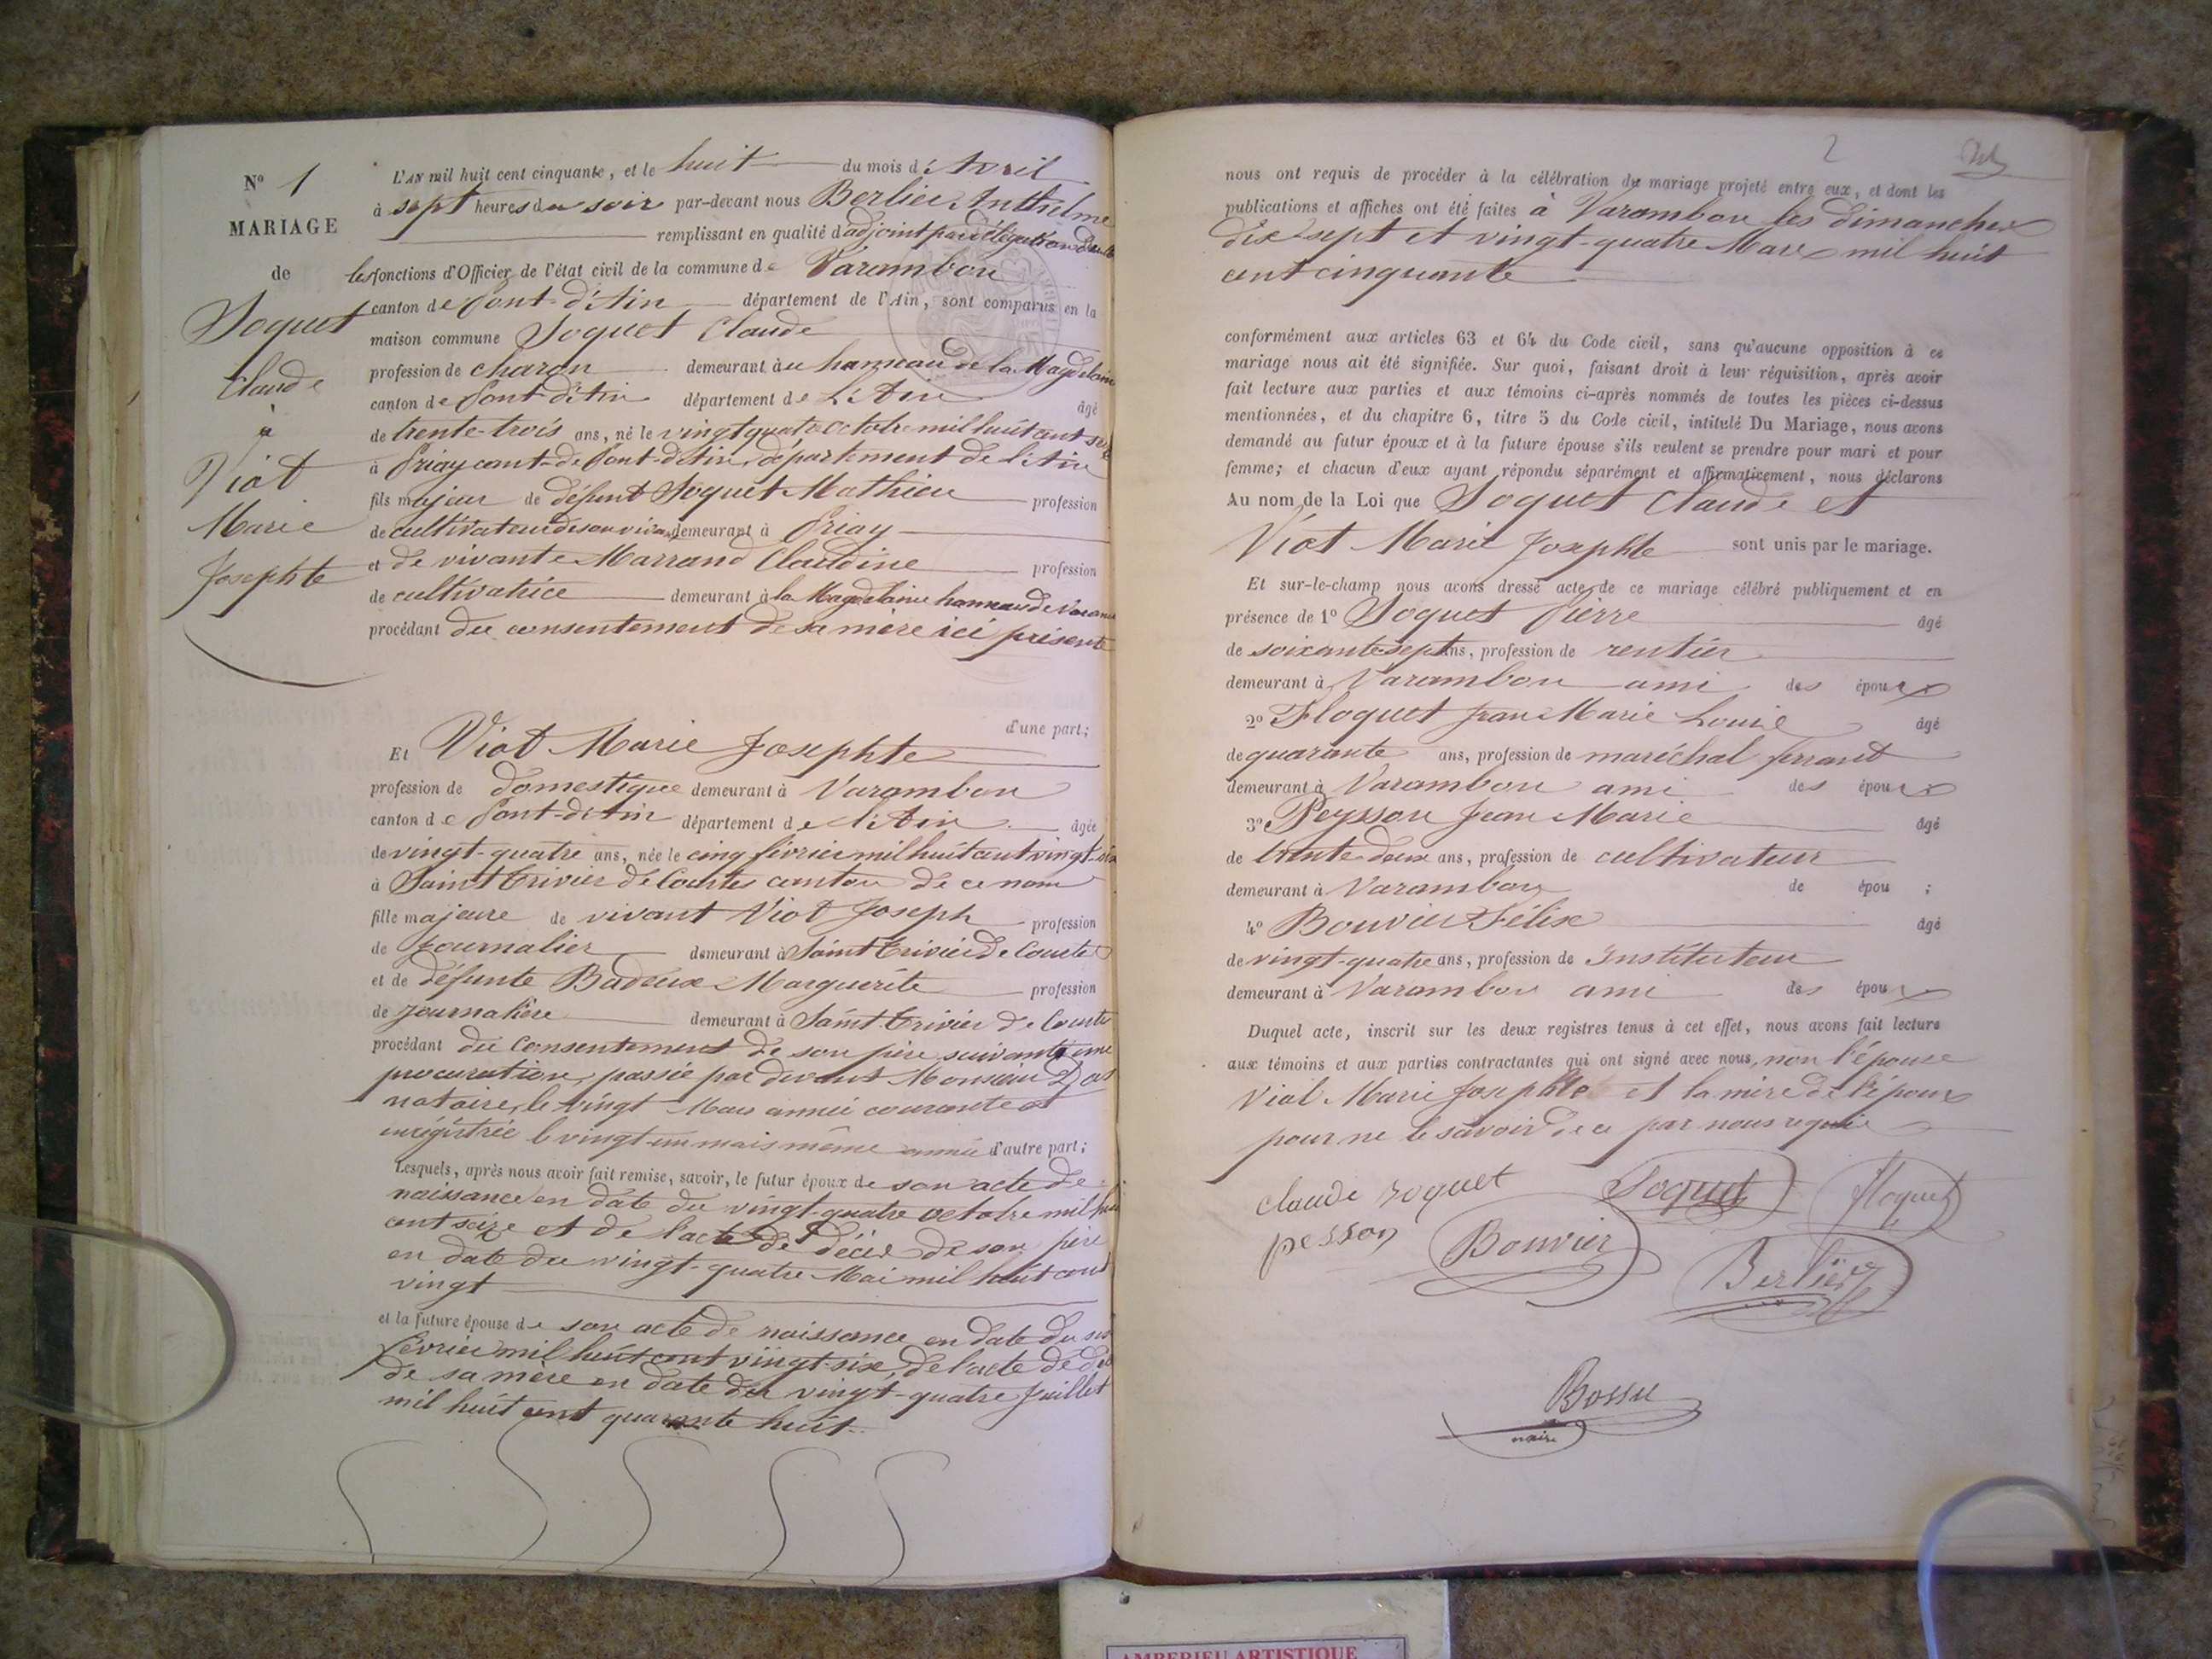 N° 1
MARIAGE
de
Soquet
Claude
à
Viot
Marie
Josephte
L'AN mil huit cent cinquante, et le huit du mois d'Avril
à sept heures du soir par-devant nous Berlier Anthelme
remplissant en qualité d'adjoint par délégation
les fonctions d'Officier de l'état civil de la commune de Varambon
canton de Pont-d'Ain département de l'Ain, sont comparus en la
maison commune Soquet Claude
profession de charon demeurant au hammeau de la Magdelaine
canton de Pont-d'Ain département de L'Ain âgé
de trente-trois ans, né le vingt quatre octobre mil huit cent seize
à Priay cant-de Pont-d'Ain, département de l'Ain
fils majeur de défunt Soquet Mathieu profession
de cultivateur de son vivant demeurant à Priay
et de vivante Marrand Claudine profession
de cultivatrice demeurant à la Magdelaine hammeau de
procédant du consentement de sa mère ici présente
d'une part;
Et Viot Marie Josephte
profession de domestique demeurant à Varambon
canton de Pont-d'Ain département de l'Ain âgée
de vingt-quatre ans, née le cinq février mil huit cent vingt-six
à Saint Trivier de Courtes canton de ce nom
fille majeure de vivant Viot Joseph profession
de Journalier demeurant à Saint Trivier de Courtes
et de défunte Badoux Marguerite profession
de Journalière demeurant à Saint-Trivier de Courtes
procédant du consentement de son père suivant une
procuration, passée par devant Monsieur
notaire, le vingt Mars année courante et
enrégistrée le vingt-un mars même année d'autre part;
Lesquels, après nous avoir fait remise, savoir, le futur époux de son acte de
naissance en date du vingt-quatre octobre mil huit
cent seize et de l'acte de décès de son père
en date du vingt-quatre Mai mil huit cent
vingt
et la future épouse de son acte de naissance en date du six
février mil huit cent vingt-six, de l'acte de décès
de sa mère en date du vingt-quatre Juillet
mil huit cent quarante huit.
2
nous ont requis de procéder à la célébration du mariage projeté entre eux, et dont les
publications et affiches ont été faites à Varambon les dimanches
dix-sept et vingt-quatre Mars mil huit
cent cinquante
conformément aux articles 63 et 64 du Code civil, sans qu'aucune opposition à ce
mariage nous ait été signifiée. Sur quoi, faisant droit à leur réquisition, après avoir
fait lecture aux parties et aux témoins ci-après nommés de toutes les pièces ci-dessus
mentionnées, et du chapitre 6, titre 5 du Code civil, intitulé Du Mariage, nous avons
demandé au futur époux et à la future épouse s'ils veulent se prendre pour mari et pour
femme; et chacun d'eux ayant répondu séparément et affirmativement, nous déclarons
Au nom de la Loi que Soquet Claude et
Viot Marie Josephte sont unis par le mariage.
Et sur-le-champ nous avons dressé acte de ce mariage célébré publiquement et en
présence de 1° Soquet Pierre âgé
de soixante sept ans, profession de rentier
demeurant à Varambon ami des époux
2° Floquet Jean Marie Louis âgé
de quarante ans, profession de maréchal ferrant
demeurant à Varambon ami des époux
3° Peysson Jean Marie âgé
de trente deux ans, profession de cultivateur
demeurant à Varambon de épou ;
4° Bouvier Félix âgé
de vingt-quatre ans, profession de Instituteur
demeurant à Varambon ami des époux
Duquel acte, inscrit sur les deux registres tenus à cet effet, nous avons fait lecture
aux témoins et aux parties contractantes qui ont signé avec nous, non l'épouse
Viot Marie Josephte et la mère de l'époux
pour ne le savoir de ce par nous requis
claude soquet Soquet floquet
pesson Bouvier Berlier
Bossu
maire
AMBERIEU ARTISTIQUE